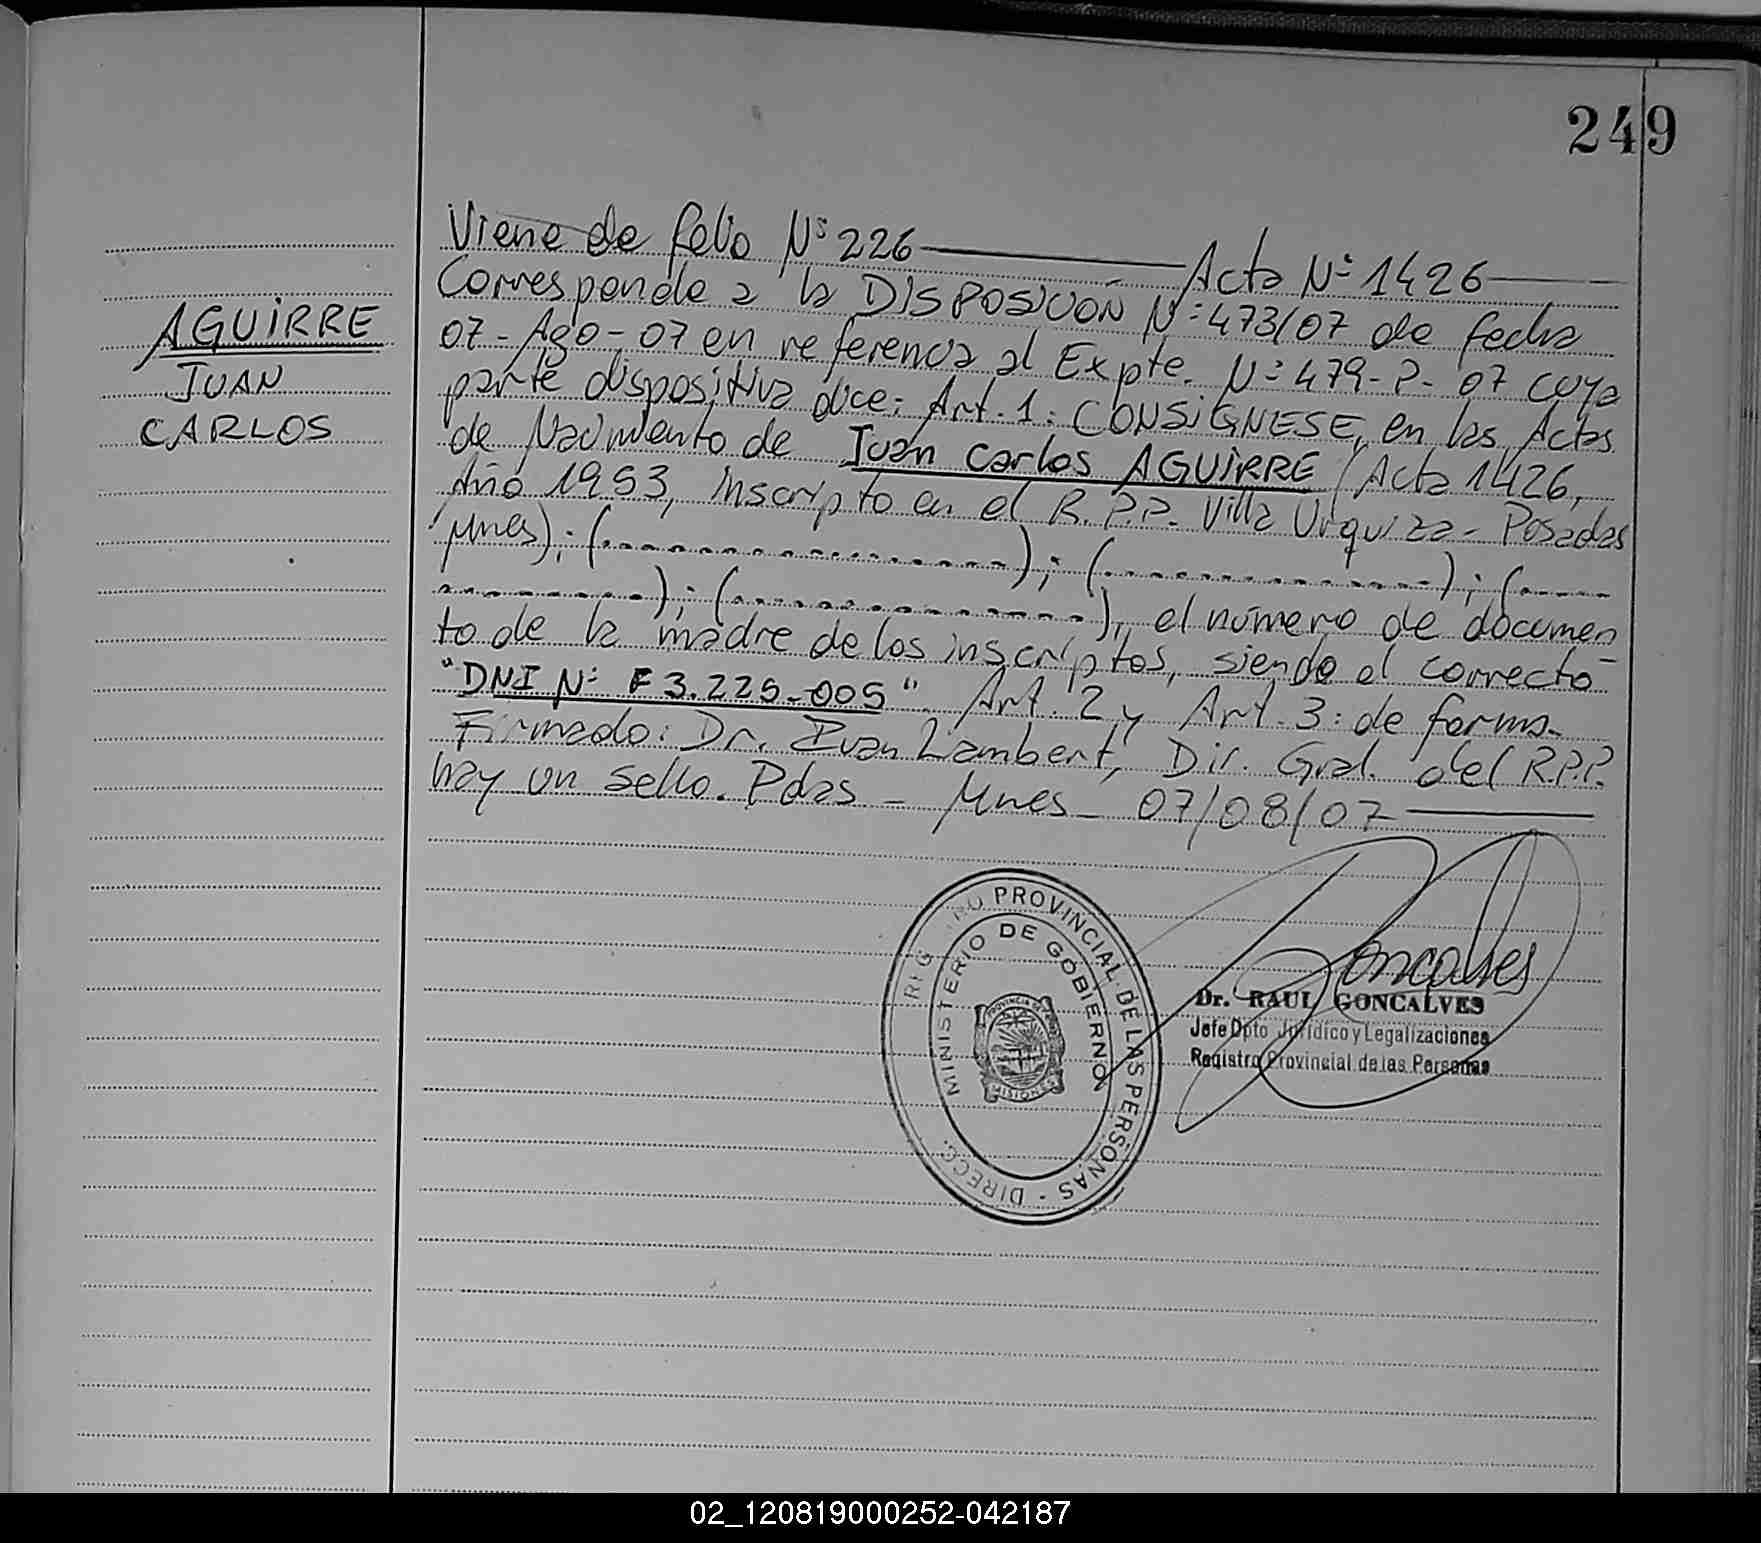 249
Viene de folio Nº 226 Acta Nº 1426
Corresponde a la DISPOSICIÓN Nº 473/07 de fecha
07-Ago-07 en referencia al Expte. Nº 479-P-07 cuya
parte dispositiva dice: Art. 1: CONSIGNESE, en las Actas
de Nacimiento de Juan Carlos AGUIRRE (Acta 1426,
Año 1953, inscripto en el R.P.P. Villa Urquiza - Posadas
Mnes); (..................); (................); (......
..........); (................), el número de documen
to de la madre de los inscriptos, siendo el correcto
"DNI Nº F 3.225.005". Art. 2 y Art. 3: de forma.
Firmado: Dr. Ivan Lambert, Dir. Gral. del R.P.P.
hay un sello. Pdas - Mnes - 07/08/07
AGUIRRE
JUAN
CARLOS
PROVINCIAL DE LAS PERSONAS - DIRECC.
MINISTERIO DE GOBIERNO
PROVINCIA DE
MISIONES
Goncalves
Dr. RAUL GONCALVES
Jefe Dpto Jurídico y Legalizaciones
Registro Provincial de las Personas
02_120819000252-042187